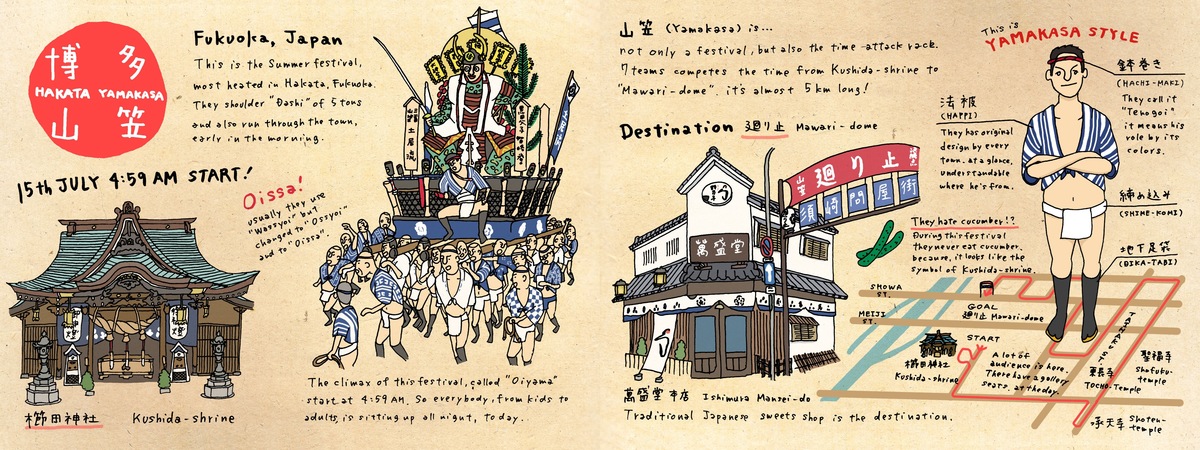 博多
HAKATA YAMAKASA
山笠
Fukuoka, Japan
This is the Summer festival,
most heated in Hakata, Fukuoka.
They shoulder "Dashi" of 5 tons
and also run through the town,
early in the morning.
15th JULY 4:59 AM START!
Oissa!
usually they use
"Wassyoi" but
changed to "Ossyoi"
and to "Oissa".
土居流
櫛田神社 Kushida-shrine
The climax of this festival, called "Oiyama"
start at 4:59 AM. So everybody, from kids to
adults, is sitting up all night, today.
山笠 (Yamakasa) is...
not only a festival, but also the time-attack rack.
7 teams competes the time from Kushida-shrine to
"Mawari-dome". it's almost 5 km long!
Destination 廻り止 Mawari-dome
山笠 廻り止
須崎問屋街
萬盛堂
萬盛堂本店 Ishimura Mansei-do
Traditional Japanese sweets shop is the destination.
This is
YAMAKASA STYLE
鉢巻き
(HACHI-MAKI)
They call it
"Tenogoi"
it means his
role by its
colors.
法被
(HAPPI)
They has original
design by every
town. at a glance,
understandable
where he's from.
締め込み
(SHIME-KOMI)
地下足袋
(DIKA-TABI)
They hate cucumber!?
During this festival
they never eat cucumber.
because, it looks like the
symbol of Kushida-shrine.
SHOWA
ST.
MEIJI
ST.
GOAL
廻り止 Mawari-dome
START
櫛田神社
Kushida-shrine
A lot of
audience is here.
There have a gallery
seats. at the day.
東長寺
TOCHO-Temple
聖福寺
Shofuku-
temple
承天寺 Shoten-
temple